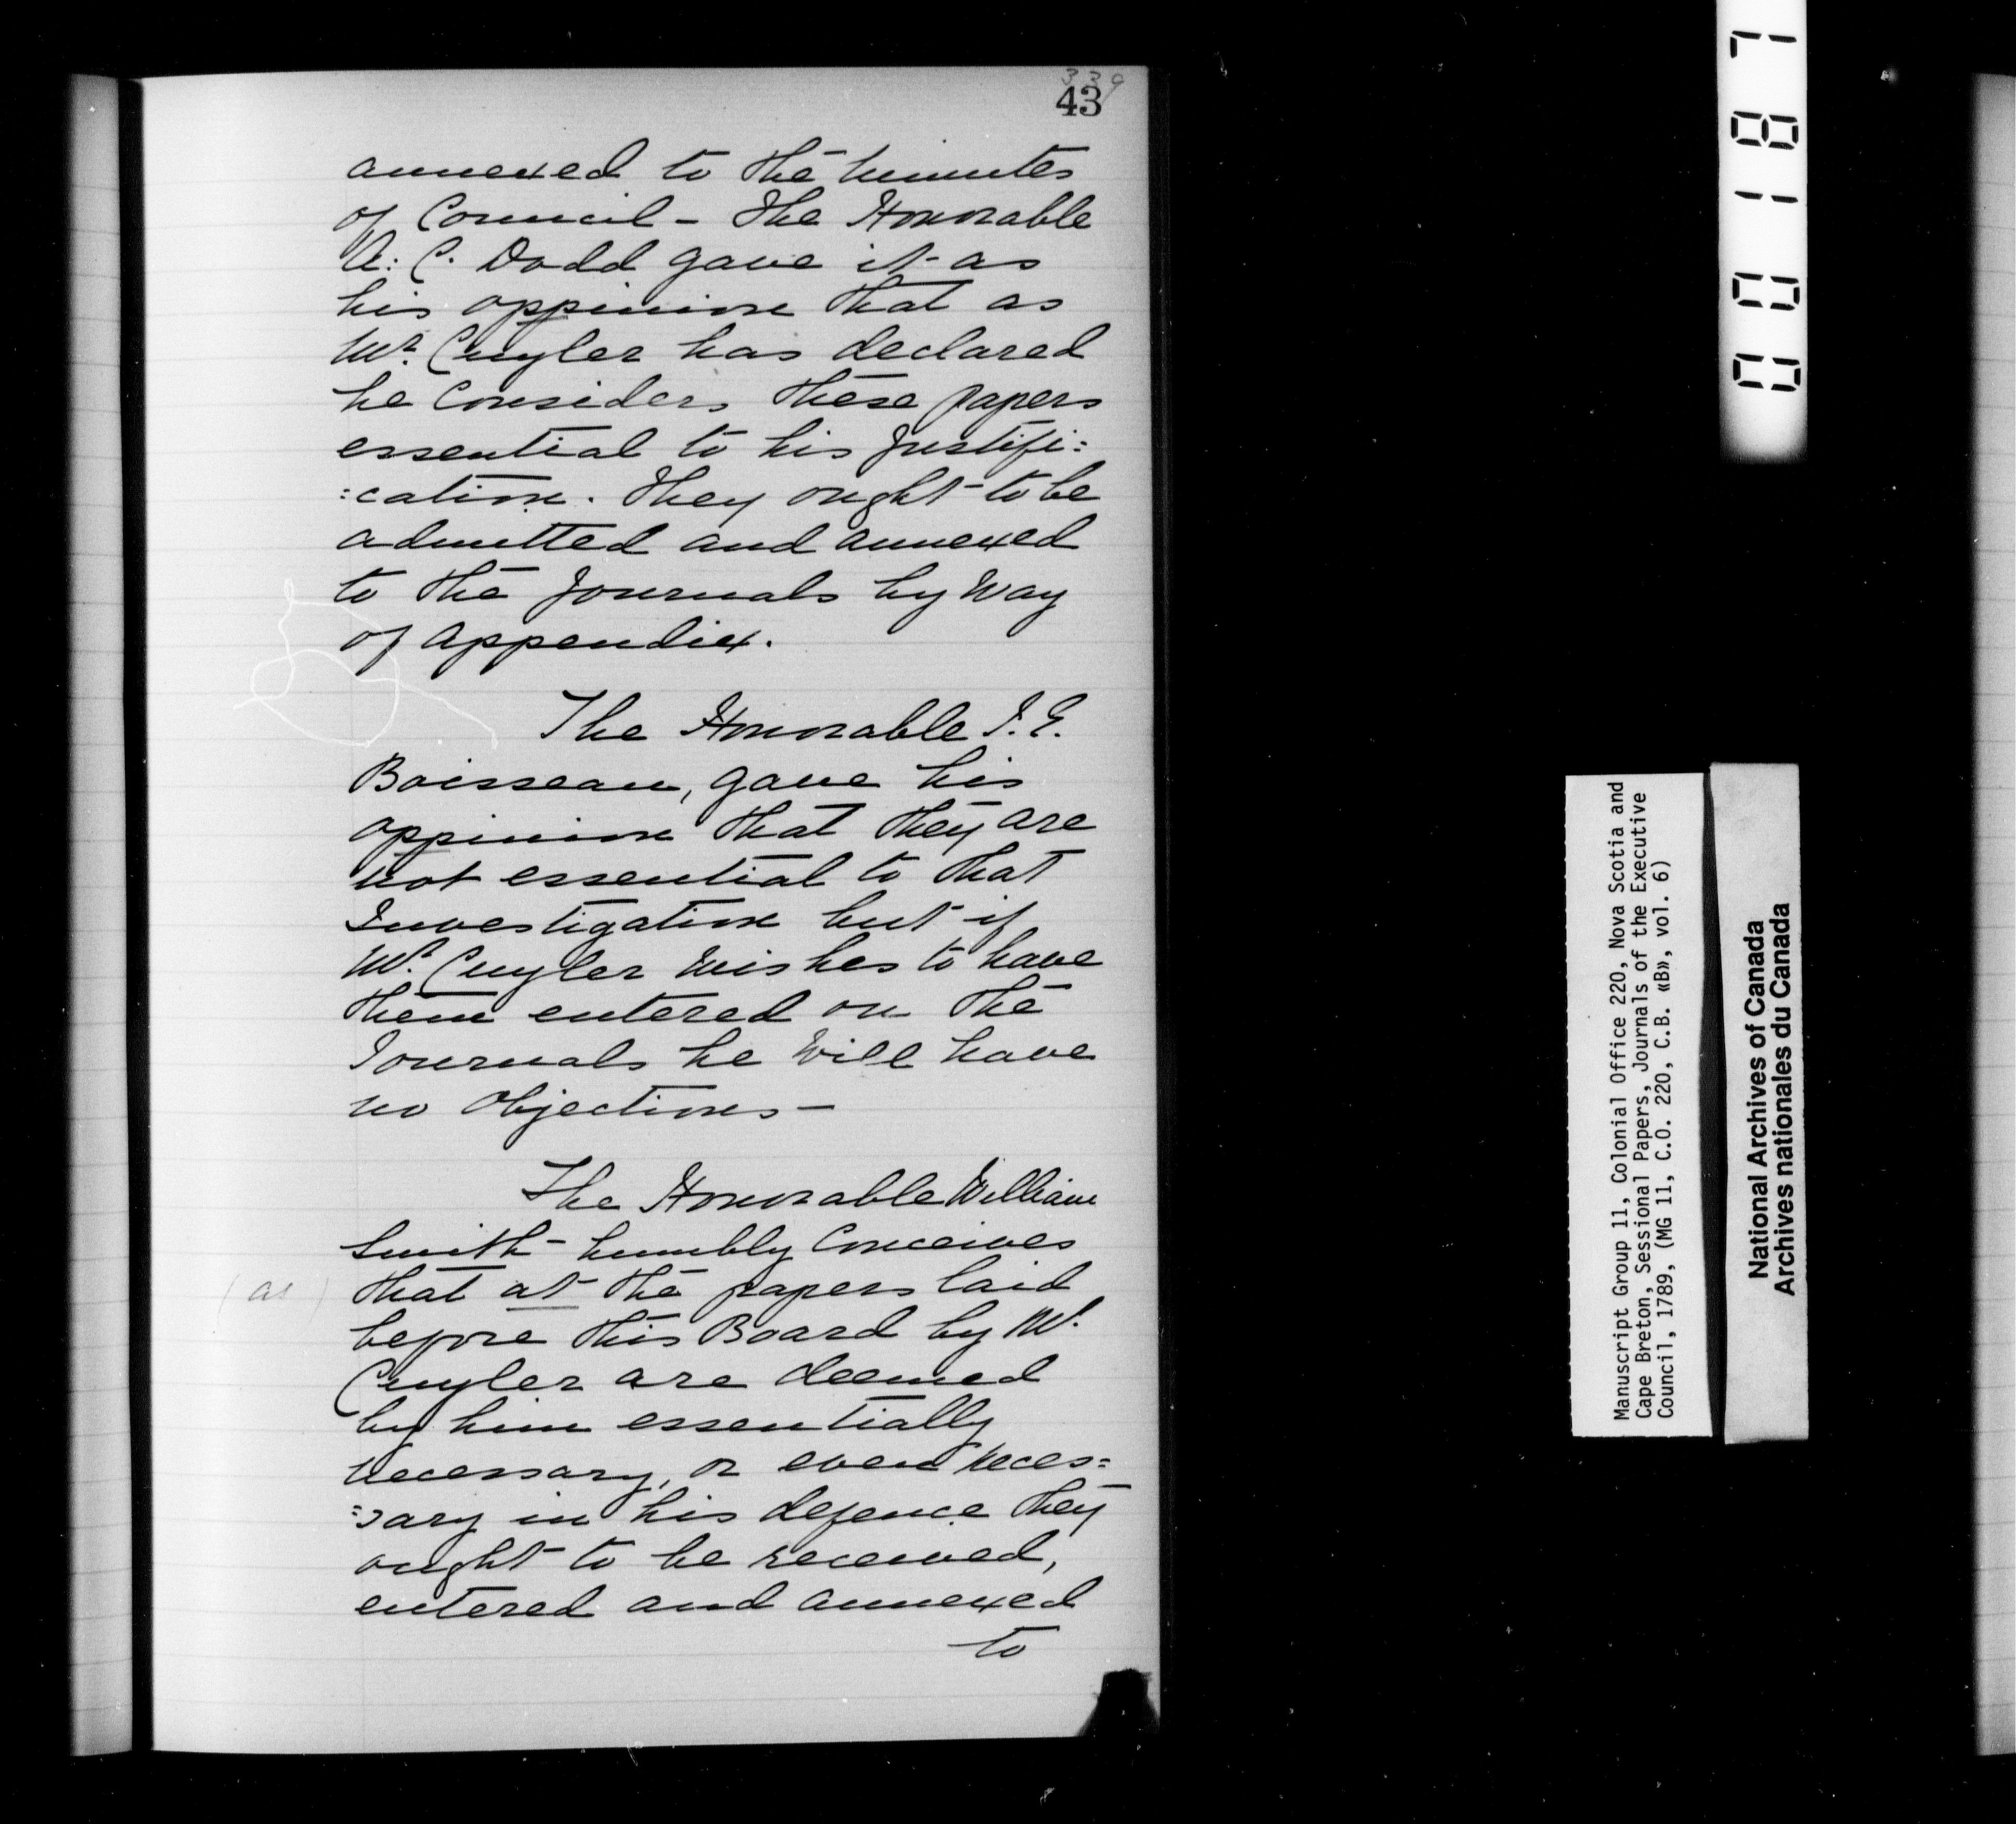 339
43
annexed to the Minutes
of Council - the Honorable
A: C. Dodd gave it as
his oppinion that as
Mr. Cuyler has declared
he Considers these papers
essential to his Justifi=
=cation. They ought to be
admitted and annexed
to the Journals by Way
of Appendix.
The Honorable I. E.
Boisseau, gave his
oppinion that they are
not essential to that
Investigation but if
Mr. Cuyler Wishes to have
them entered on the
Journals he Will have
no Objections -
The Honorable William
Smith - humbly Conceives
(as) that at the papers laid
before this Board by Mr.
Cuyler are deemed
by him essentially
necessary, or even neces=
=sary in his defence they
ought to be received,
entered and annexed
to
001187
Manuscript Group 11, Colonial Office 220, Nova Scotia and
Cape Breton, Sessional Papers, Journals of the Executive
Council, 1789, (MG 11, C.O. 220, C.B. «B», vol. 6)
National Archives of Canada
Archives nationales du Canada